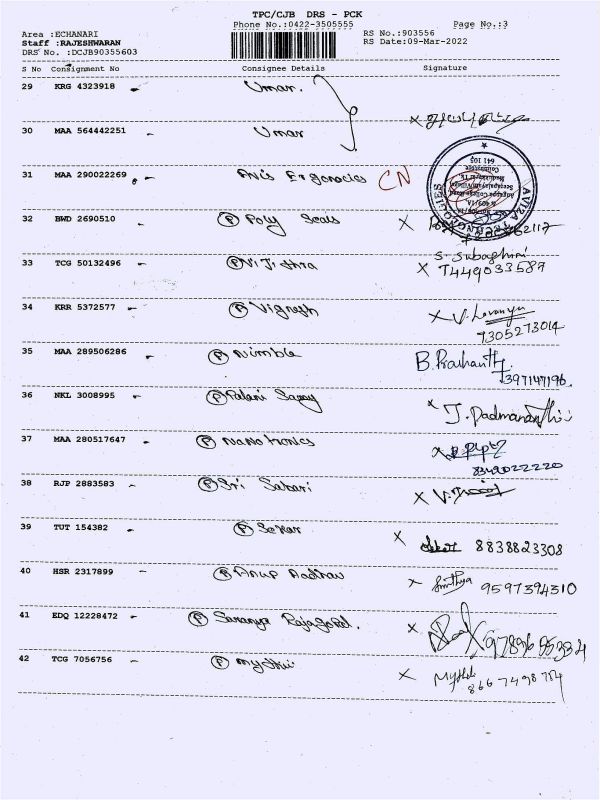 TPC/CJB DRS - PCK
Phone No.:0422-3505555 Page No.:3
Area :ECHANARI RS No.:903556
Staff :RAJESHWARAN RS Date:09-Mar-2022
DRS No. :DCJB90355603
S No Consignment No Consignee Details Signature
29 KRG 4323918 Umar.
30 MAA 564442251 Umar
31 MAA 290022269 CN
AVIZA
641 105
32 BWD 2690510 (P) Poly Seals X
33 TCG 50132496 (P) Vijithra S. Subaghini
X 7449033589
34 KRR 5372577 (P) Vignesh X V. Lavanya
7305273014
35 MAA 289506286 (P) Nimble B. Prashanth
7397147196
36 NKL 3008995 (P) Palani Samy X J. Padmanabhi
37 MAA 280517647 (P) Nanotronics X
8349022220
38 RJP 2883583 (P) Sri Sabari X V.
39 TUT 154382 (P) Sekar X 8838823308
40 HSR 2317899 (P) Anup Aadhav X Smithya 9597394310
41 EDQ 12228472 (P) Saranya Rajagopal. X
42 TCG 7056756 (P) Mythili X Mythili
8667498754